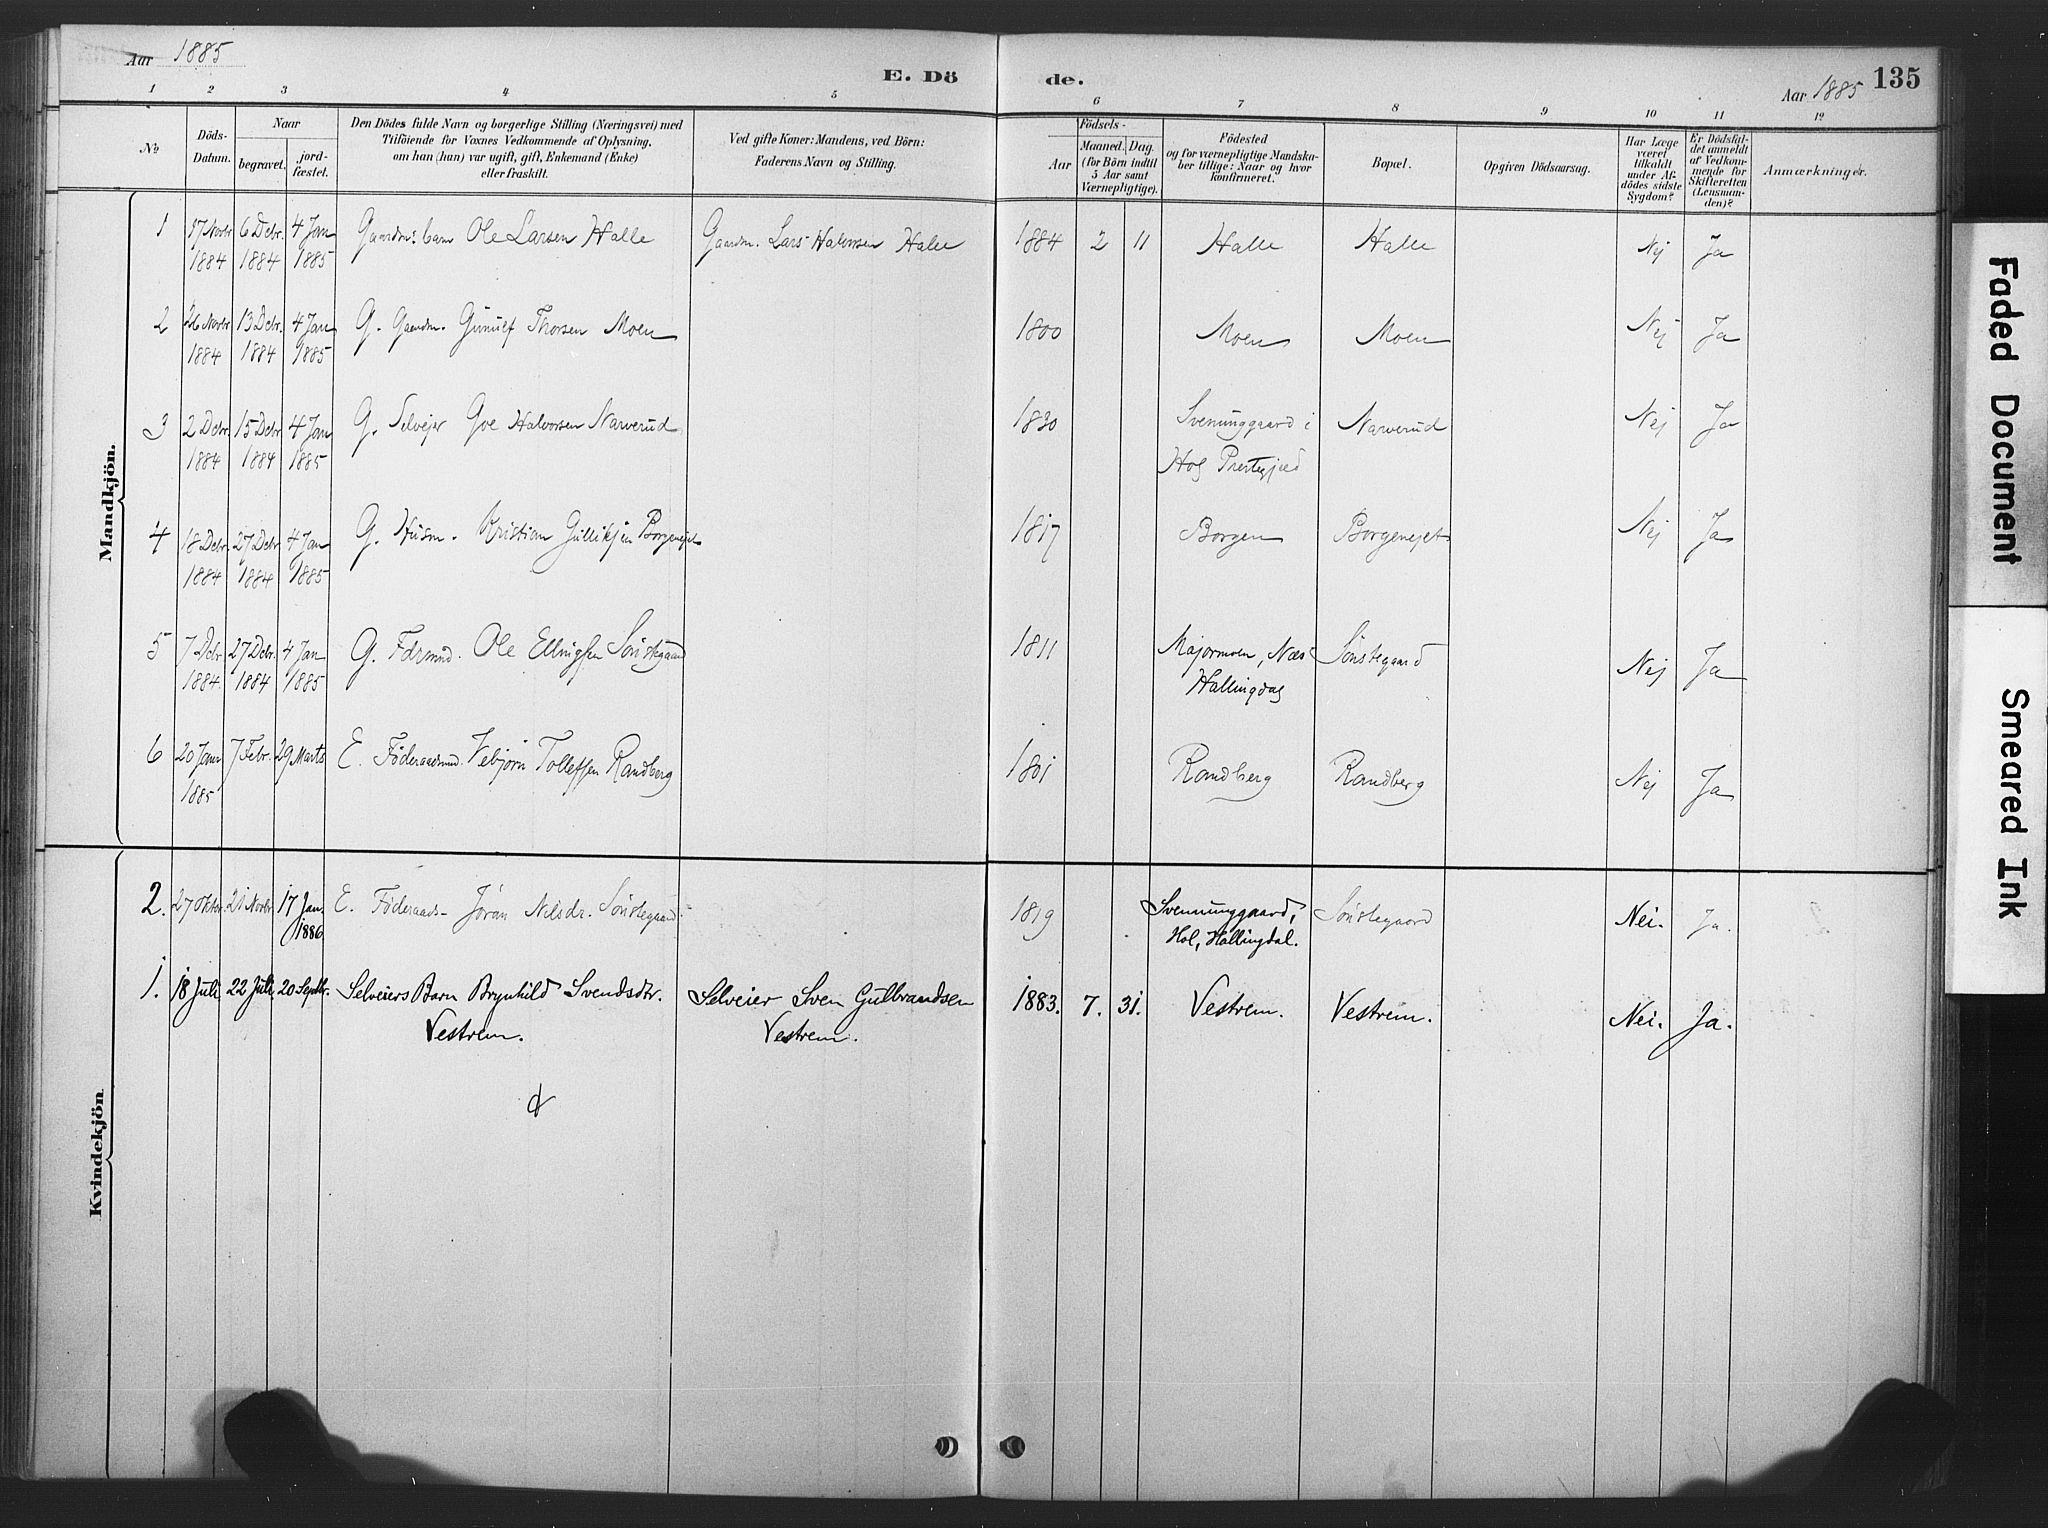 Aar 1885
E. Döde.
Aar 1885 135
1 2 3 4 5 6 7 8 9 10 11 12
No
Döds-Datum.
Naar
begravet.
jordfæstet.
Den Dödes fulde Navn og borgerlige Stilling (Næringsvei) med
Tilföiende for Voxnes Vedkommende af Oplysning,
om han (hun) var ugift, gift, Enkemand (Enke)
eller fraskilt.
Ved gifte Koner: Mandens, ved Börn:
Faderens Navn og Stilling.
Födsels-
Aar
Maaned. Dag.
(for Börn indtil
5 Aar samt
Værnepligtige).
Födested
og for værnepligtige Mandskaber tillige: Naar og hvor
konfirmeret.
Bopæl.
Opgiven Dödsaarsag.
Har Læge
været
tilkaldt
under Afdödes sidste
Sygdom?
Er Dödsfaldet anmeldt
af Vedkommende for
Skifteretten
(Lensmanden)?
Anmærkninger.
Mandkjön.
1 17 Novbr 1884 6 Dcbr. 1884 4 Jan 1885 Gaardm: barn Ole Larsen Halle Gaardm. Lars Halvorsen Halle 1884 2 11 Halle Halle Nej Ja
2 26 Novbr 1884 13 Dcbr. 1884 4 Jan 1885 G. Gaardm. Gunulf Thorsen Moen 1800 Moen Moen Nej Ja
3 2 Dcbr. 1884 15 Dcbr 1884 4 Jan 1885 G. Selvejer Goe Halvorsen Narverud 1830 Svenunggaard i Hol Prestegjeld Narverud Nej Ja
4 18 Dcbr. 1884 27 Dcbr. 1884 4 Jan 1885 G. Husm. Kristian Gulliksen Borgenejet 1817 Borgen Borgenejet Nej Ja
5 7 Dcbr 1884 27 Dcbr. 1884 4 Jan 1885 G. Fdrmnd. Ole Ellingsen Sönstegaard 1811 Majormoen, Næs Hallingdal Sönstegaard Nej Ja
6 20 Janr 1885 7 Febr. 29 Marts E. Föderaadsmd. Vebjörn Tollefsen Randberg 1801 Randberg Randberg Nej Ja
Kvindekjön
2. 27 Oktbr. 21 Novbr 17 Jan. 1886 E. Föderaads- Jöran Nilsdr. Sönstegaard 1819 Svenunggaard, Hol, Hallingdal. Sönstegaard Nei. Ja.
1. 18 Juli 22 Juli 20 Septbr. Selveiers Barn Brynhild Svendsdtr. Vestrem. Selveier Sven Gulbrandsen Vestrem. 1883. 7. 31. Vestrem. Vestrem. Nei. Ja.
Faded Document
Smeared Ink